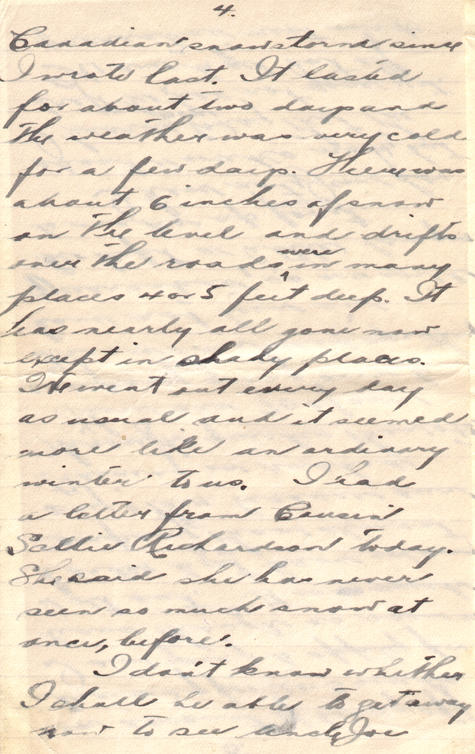 4.
Canadian snowstorm since
I wrote last. It lasted
for about two days and
the weather was very cold
for a few days. There was
about 6 inches of snow
on the level and drifts
over the roads were in many
places 4 or 5 feet deep. It
has nearly all gone now
except in shady places.
We went out every day
as usual and it seemed
more like an ordinary
winter to us. I had
a letter from Cousin
Sallie Richardson today.
She said she has never
seen so much snow at
once, before.
I don't know whether
I shall be able to get away
now to see Uncle Joe